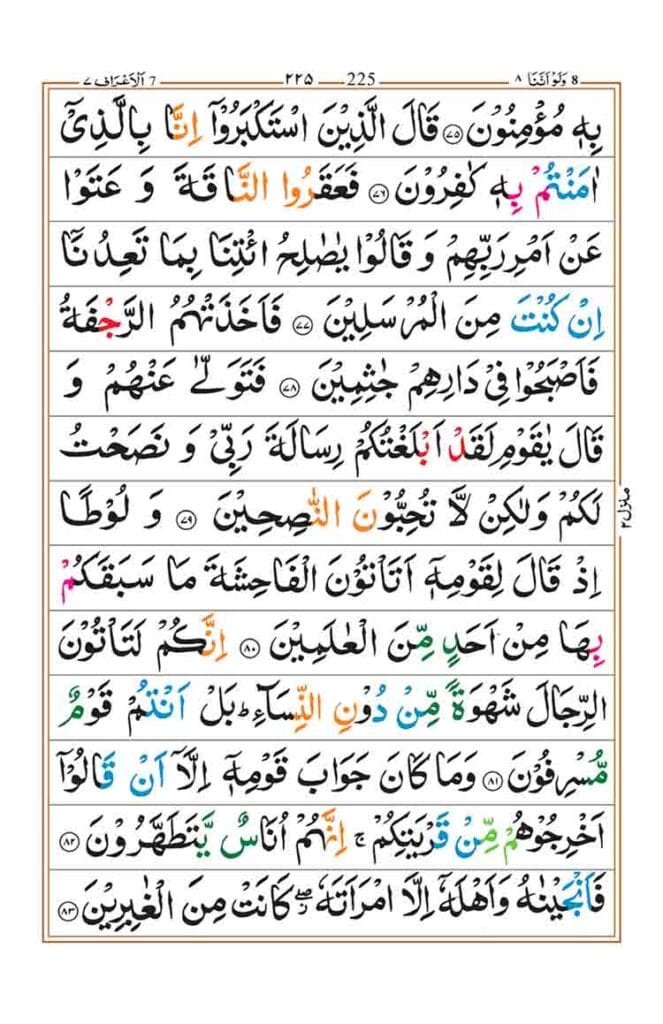 8 وَلَوْ اَنَّنَا ٨ 225 ٢٢٥ 7 اَلْاَعْرَاف ٧
بِهٖ مُؤْمِنُوْنَ ۝٧٥ قَالَ الَّذِيْنَ اسْتَكْبَرُوْۤا اِنَّا بِالَّذِيْۤ
اٰمَنْتُمْ بِهٖ كٰفِرُوْنَ ۝٧٦ فَعَقَرُوا النَّاقَةَ وَ عَتَوْا
عَنْ اَمْرِ رَبِّهِمْ وَ قَالُوْا يٰصٰلِحُ ائْتِنَا بِمَا تَعِدُنَاۤ
اِنْ كُنْتَ مِنَ الْمُرْسَلِيْنَ ۝٧٧ فَاَخَذَتْهُمُ الرَّجْفَةُ
فَاَصْبَحُوْا فِيْ دَارِهِمْ جٰثِمِيْنَ ۝٧٨ فَتَوَلّٰى عَنْهُمْ وَ
قَالَ يٰقَوْمِ لَقَدْ اَبْلَغْتُكُمْ رِسَالَةَ رَبِّيْ وَ نَصَحْتُ
لَكُمْ وَلٰكِنْ لَّا تُحِبُّوْنَ النّٰصِحِيْنَ ۝٧٩ وَ لُوْطًا
اِذْ قَالَ لِقَوْمِهٖۤ اَتَاْتُوْنَ الْفَاحِشَةَ مَا سَبَقَكُمْ
بِهَا مِنْ اَحَدٍ مِّنَ الْعٰلَمِيْنَ ۝٨٠ اِنَّكُمْ لَتَاْتُوْنَ
الرِّجَالَ شَهْوَةً مِّنْ دُوْنِ النِّسَآءِ ؕ بَلْ اَنْتُمْ قَوْمٌ
مُّسْرِفُوْنَ ۝٨١ وَمَا كَانَ جَوَابَ قَوْمِهٖۤ اِلَّاۤ اَنْ قَالُوْۤا
اَخْرِجُوْهُمْ مِّنْ قَرْيَتِكُمْ ۚ اِنَّهُمْ اُنَاسٌ يَّتَطَهَّرُوْنَ ۝٨٢
فَاَنْجَيْنٰهُ وَاَهْلَهٗۤ اِلَّا امْرَاَتَهٗ ۖ كَانَتْ مِنَ الْغٰبِرِيْنَ ۝٨٣
منزل ٢